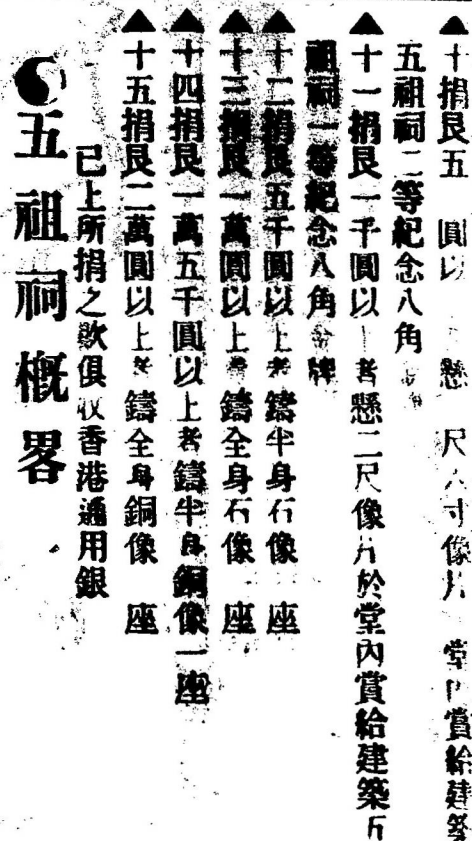 ▲十捐艮五 圓以 懸 尺六寸像片 堂內賞給建築
五祖祠二等紀念八角
▲十一捐艮一千圓以上者懸二尺像片於堂內賞給建築五
祖祠一等紀念八角金牌
▲十二捐艮五千圓以上者鑄半身石像 座
▲十三捐艮一萬圓以上者鑄全身石像 座
▲十四捐艮一萬五千圓以上者鑄半身銅像一座
▲十五捐艮二萬圓以上者鑄全身銅像 座
已上所捐之欵俱收香港通用銀
五祖祠概畧